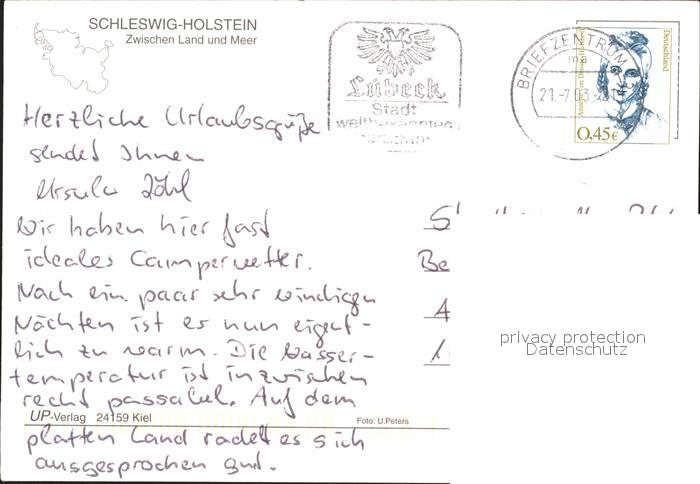 SCHLESWIG-HOLSTEIN
Zwischen Land und Meer
Lübeck
Stadt
BRIEFZENTRUM
21.-7.03
Deutschland
0,45€
Herzliche Urlaubsgrüße
sendet Ihnen
Ursula
Wir haben hier fast
ideales Camperwetter.
Nach ein paar sehr windigen
Nächten ist es nun eigent-
lich zu warm. Die Wasser-
temperatur ist inzwischen
recht passabel. Auf dem
UP-Verlag 24159 Kiel
Foto: U.Peters
platten Land radelt es sich
ausgesprochen gut.
Be
A
privacy protection
Datenschutz